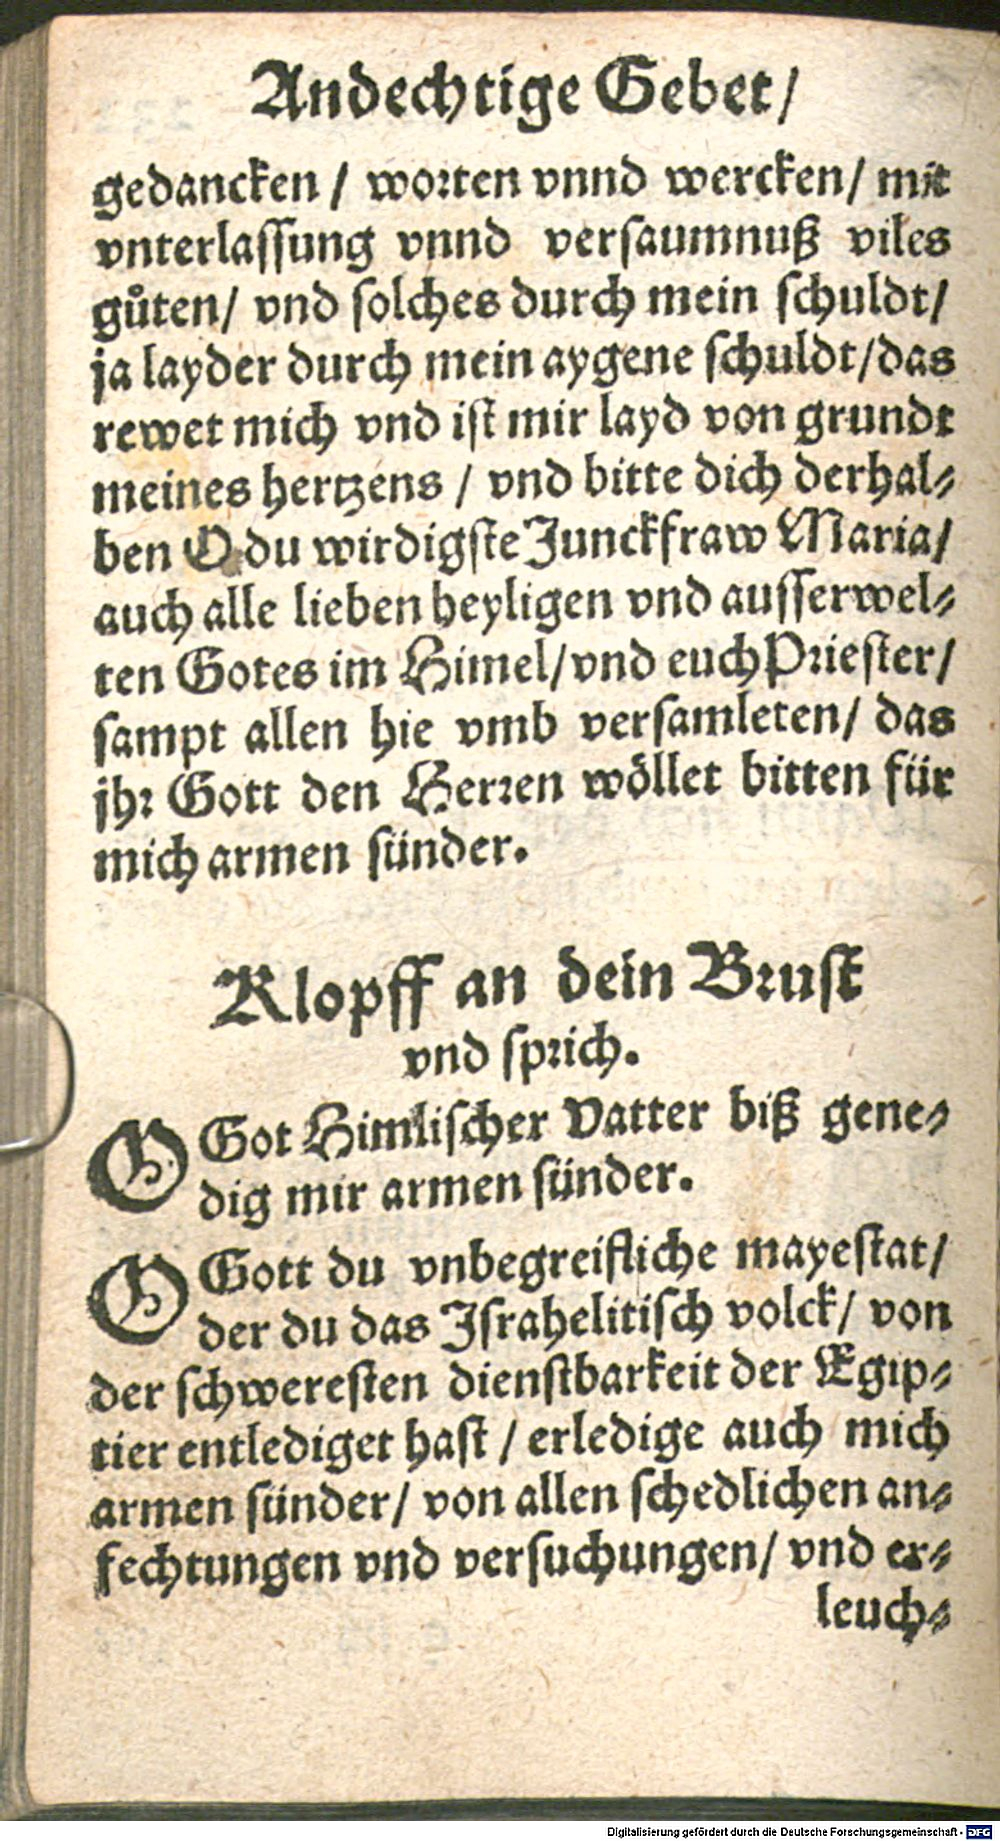 Andechtige Gebet/
gedancken / worten vnnd wercken/ mit
vnterlassung vnnd versaumnuß viles
gůten/ vnd solches durch mein schuldt/
ja layder durch mein aygene schuldt/das
rewet mich vnd ist mir layd von grundt
meines hertzens / vnd bitte dich derhal⸗
ben O du wirdigste Junckfraw Maria/
auch alle lieben heyligen vnd ausserwel⸗
ten Gotes im Himel/vnd euch Priester/
sampt allen hie vmb versamleten/ das
jhr Gott den Herren wöllet bitten für
mich armen sünder.
Klopff an dein Brust
vnd sprich.
O Got Himlischer Vatter biß gene⸗
dig mir armen sünder.
O Gott du vnbegreifliche mayestat/
der du das Israhelitisch volck/ von
der schweresten dienstbarkeit der Egip⸗
tier entlediget hast / erledige auch mich
armen sünder/ von allen schedlichen an⸗
fechtungen vnd versuchungen/ vnd er⸗
leuch⸗
Digitalisierung gefördert durch die Deutsche Forschungsgemeinschaft - DFG